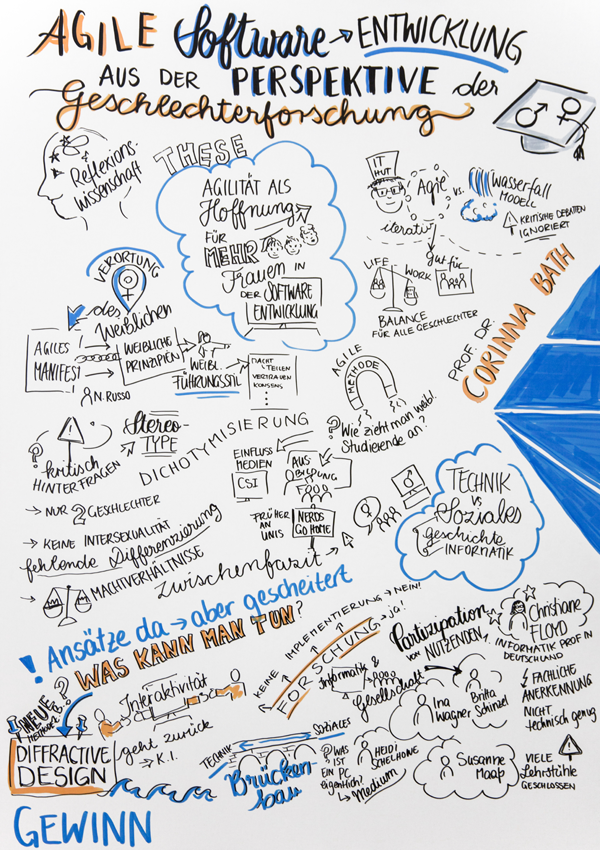 AGILE Software → ENTWICKLUNG
AUS DER PERSPEKTIVE der
Geschlechterforschung
Reflexions-
wissenschaft
THESE
AGILITÄT ALS
Hoffnung
FÜR
MEHR
Frauen IN
DER SOFTWARE
ENTWICKLUNG
IT
HUT
Agile vs. Wasserfall
MODELL
KRITISCHE DEBATTEN
IGNORIERT
iterativ
gut für
LIFE
WORK
BALANCE
FÜR ALLE GESCHLECHTER
PROF. DR.
CORINNA BATH
VERORTUNG
des
Weiblichen
AGILES
MANIFEST
WEIBLICHE
PRINZIPIEN
WEIBL.
FÜHRUNGSSTIL
MACHT
TEILEN
VERTRAUEN
KONSENS
N. RUSSO
AGILE
METHODE
? Wie zieht man weibl.
Studierende an?
?
kritisch
HINTERFRAGEN
Stereo-
TYPE
DICHOTYMISIERUNG
EINFLUSS
MEDIEN
CSI
AUS-
BILDUNG
FRÜHER
AN
UNIS
NERDS
GO HOME
→ NUR 2 GESCHLECHTER
→ KEINE INTERSEXUALITÄT
fehlende Differenzierung
→ MACHTVERHÄLTNISSE
zwischenfazit →
TECHNIK
VS
Soziales
geschichte
INFORMATIK
! Ansätze da → aber gescheitert
WAS KANN MAN TUN?
KEINE IMPLEMENTIERUNG → NEIN!
FORSCHUNG → ja!
Partizipation
VON NUTZENDEN
Christiane
FLOYD
INFORMATIK PROF IN
DEUTSCHLAND
Informatik &
Gesellschaft
Ina
Wagner
Britta
Schinzel
FACHLICHE
ANERKENNUNG
NICHT
technisch genug
NEUE
METHODE
?
Interaktivität
geht zurück
→ K.I.
DIFFRACTIVE
DESIGN
TECHNIK
SOZIALES
Brücken-
bau
? WAS
IST
EIN PC
eigentlich?
↳ Medium
HEIDI
SCHELHOWE
Susanne
Maaß
VIELE
Lehrstühle
GESCHLOSSEN
GEWINN